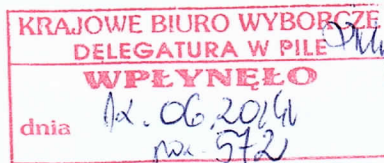 KRAJOWE BIURO WYBORCZE
DELEGATURA W PILE
WPŁYNĘŁO
dnia 12.06.2014
572